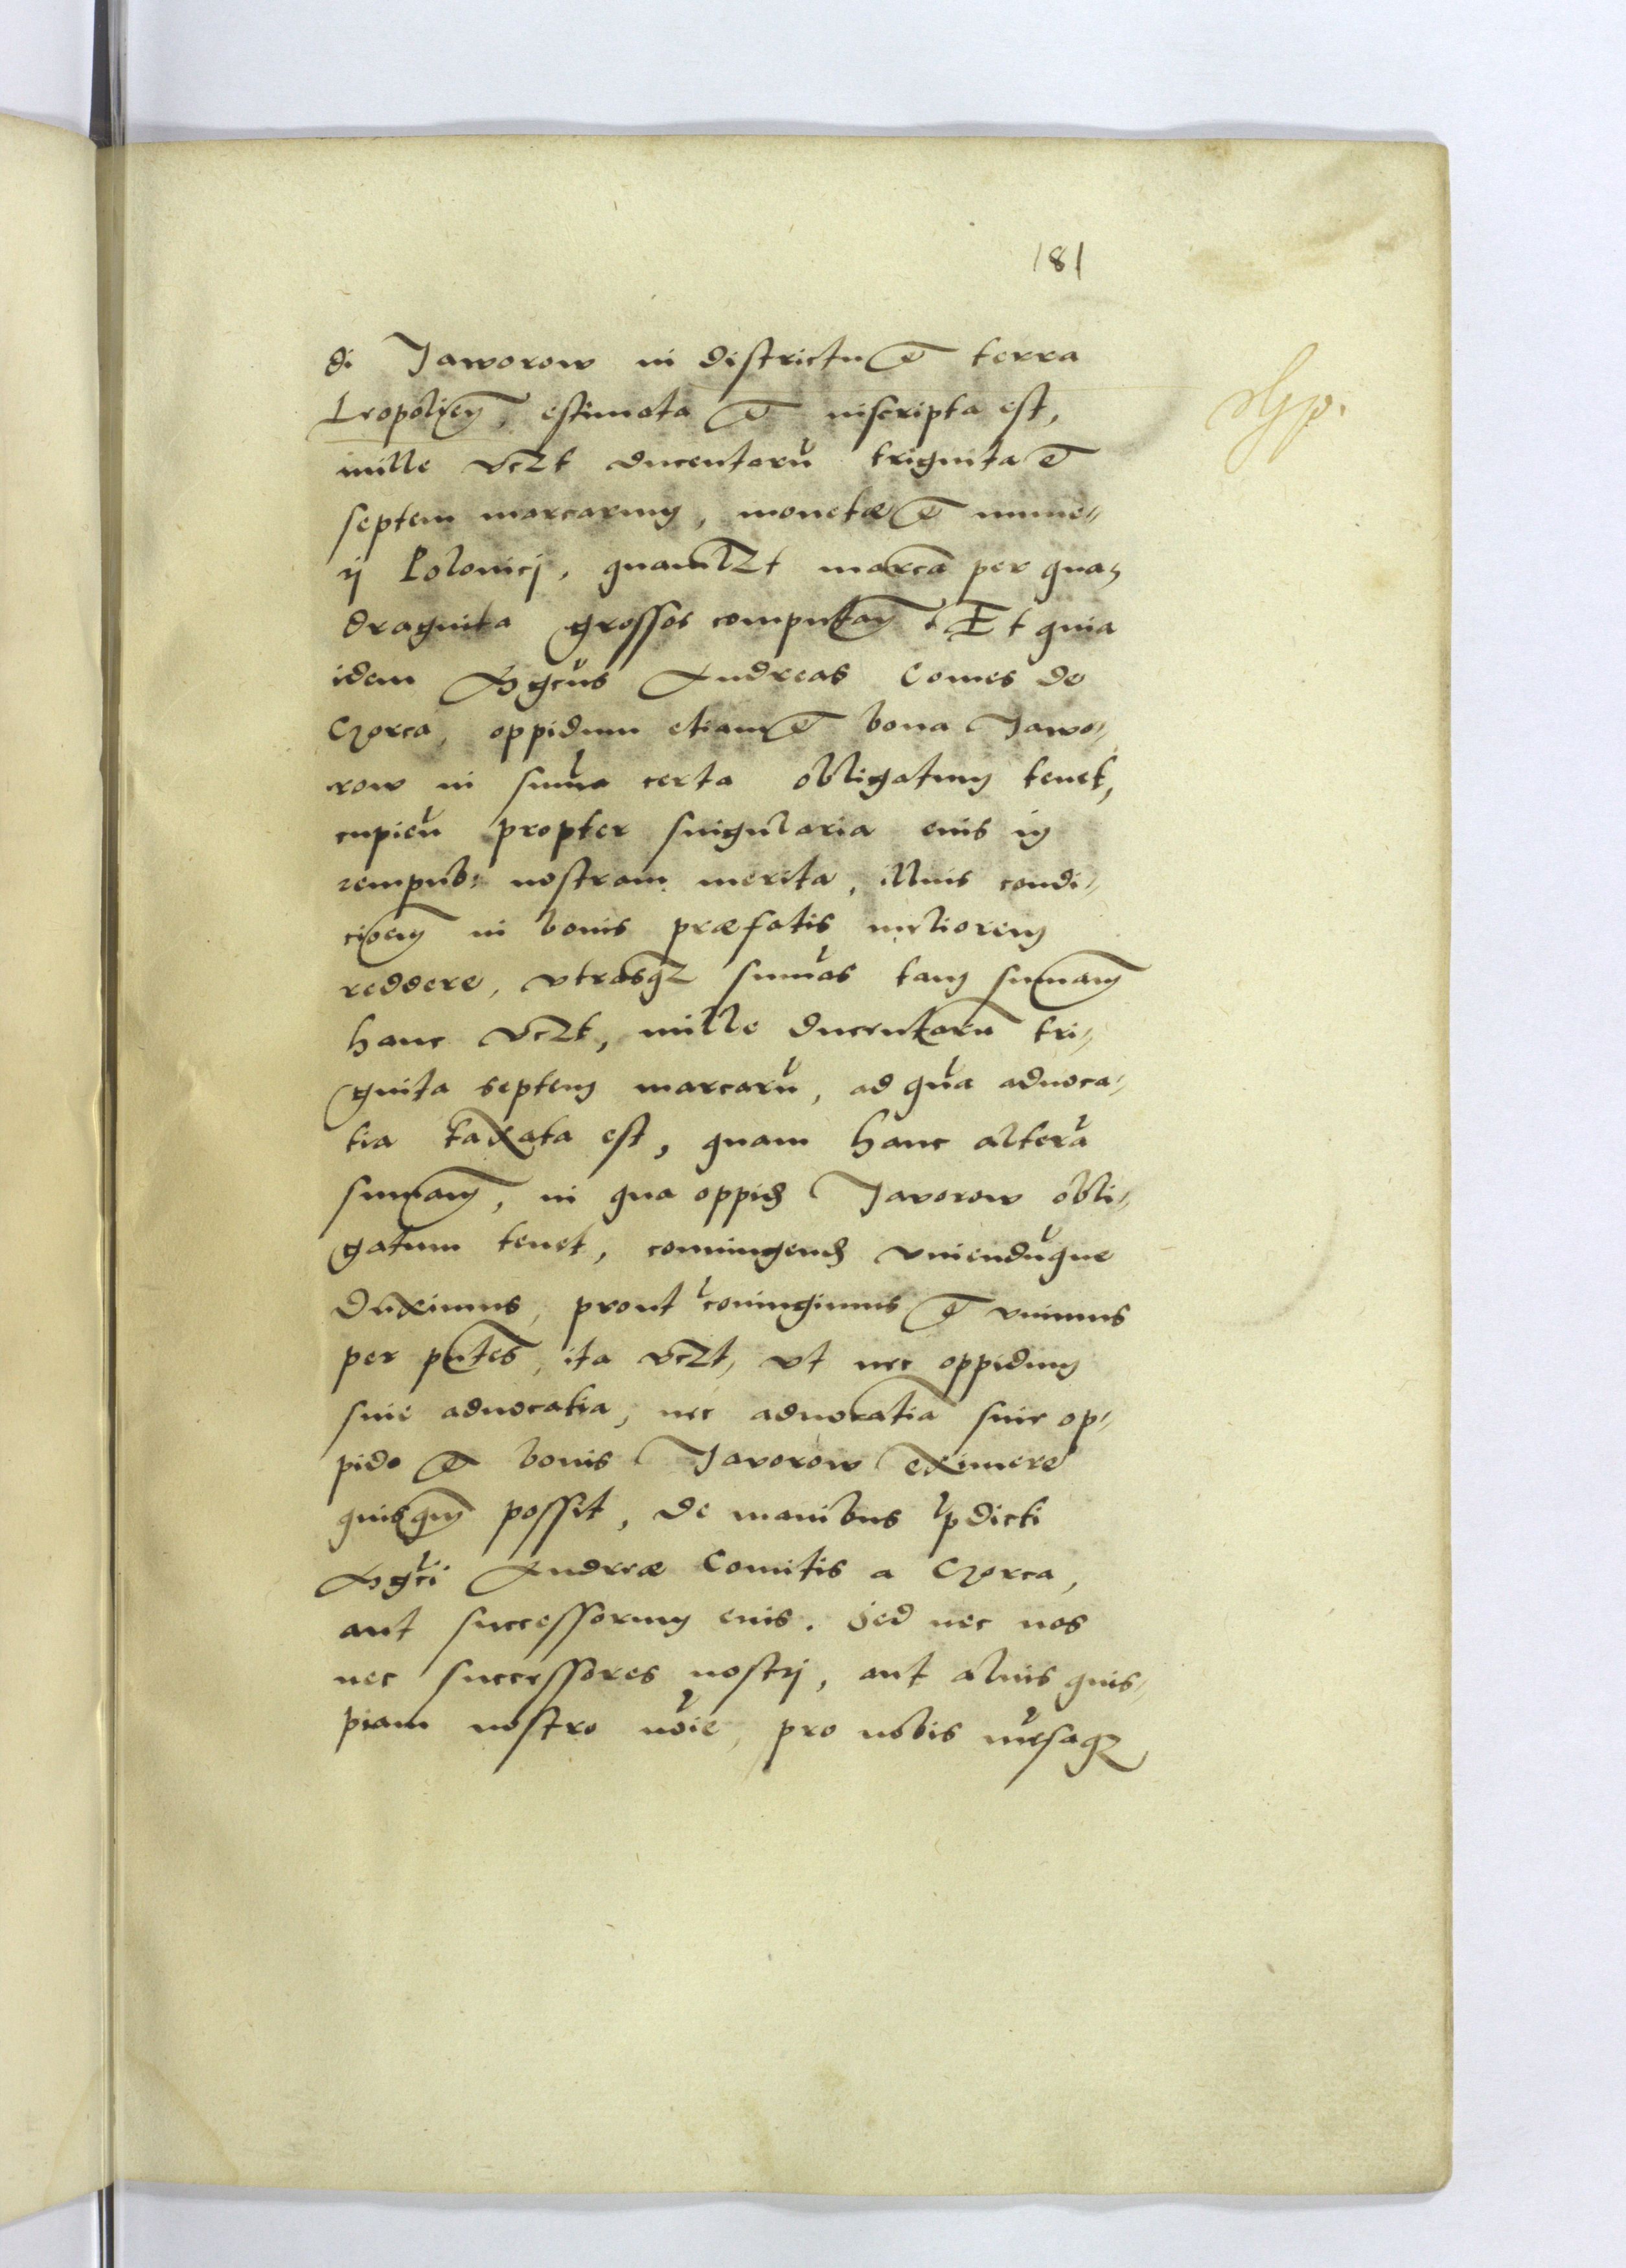 181
di Jaworow in districtu et terra
Leopolien, estimata et inscripta est,
mille vczt ducentorū triginta et
septem marcarum, monetæ et nume-
ri Polonicj, quamlzt marcā per qua-
draginta grossos computan. Et quia
idem Mgcus Andreas Comes de
Gorca, oppidum etiam et bona Jawo-
row in suma certa obligatum tenet,
cupien propter singularia eius in
rempub: nostram merita, illius condi-
cioem in bonis præfatis meliorem
reddere, vtrasqz sumas tam sumam
hanc vczt, mille ducentorū tri-
ginta septem marcarū, ad quā aduoca-
tia taxata est, quam hanc alterā
sumam, in qua oppid Javorow obli-
gatum tenet, coniungend vniendūque
duximus, prout coniungimus et vnimus
per pntes, ita vczt, vt nec oppidum
sine aduocatia, nec aduocatia sine op-
pido et bonis Javorow eximere
quisqm possit, de manibus pdicti
Mgci Andreæ Comitis a Gorca,
aut successorum eius. Sed nec nos
nec successores nostrj, aut alius quis-
piam nostro noie, pro nobis mēsaqz